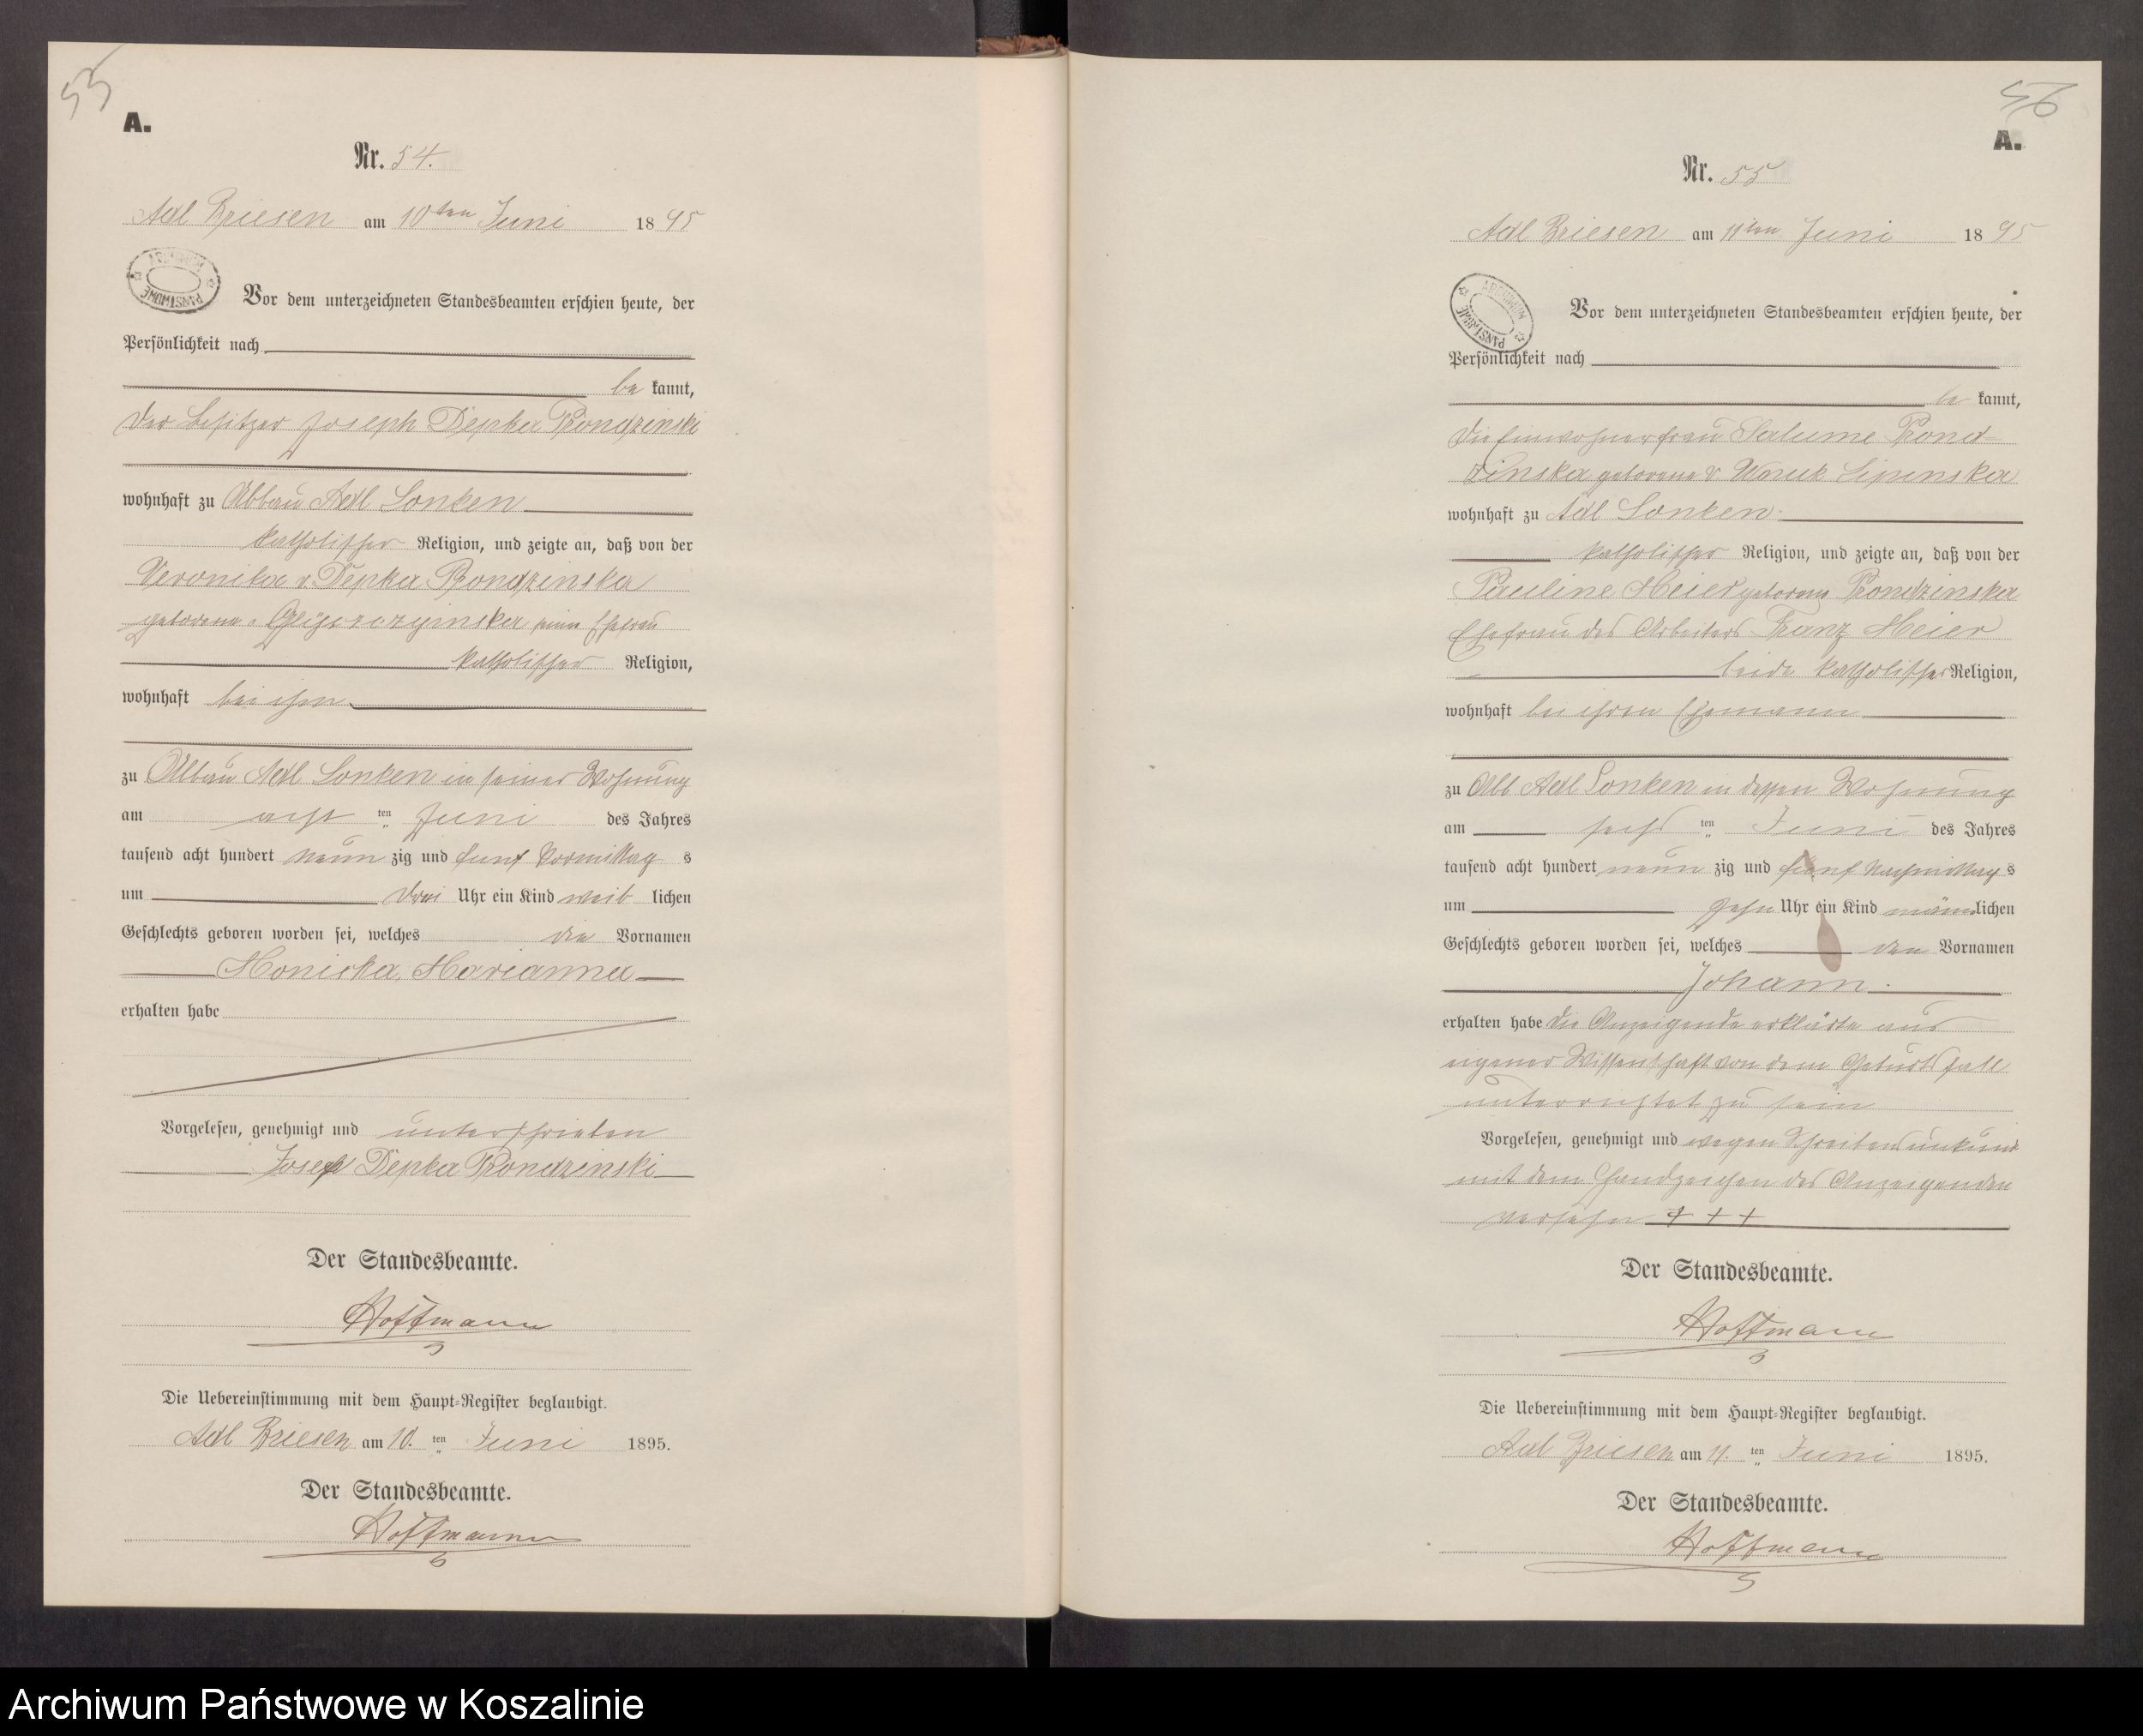 55
A.
Nr. 54.
Adl Briesen am 10ten Juni 1895
ARCHIWUM PAŃSTWOWE
Vor dem unterzeichneten Standesbeamten erschien heute, der
Persönlichkeit nach
be kannt,
der Besitzer Joseph Depka Prondzinski
wohnhaft zu Abbau Adl Lonken
katholischer Religion, und zeigte an, daß von der
Veronika v. Depka Prondzinska
geborene seine Ehefrau
katholischer Religion,
wohnhaft bei ihm
zu Abbau Adl Lonken in seiner Wohnung
am acht ten Juni des Jahres
tausend acht hundert neun zig und fünf Vormittag s
um drei Uhr ein Kind weib lichen
Geschlechts geboren worden sei, welches die Vornamen
Monicka, Marianna
erhalten habe
Vorgelesen, genehmigt und unterschrieben
Josef Depka Prondzinski
Der Standesbeamte.
Hoffmann
Die Uebereinstimmung mit dem Haupt-Register beglaubigt.
Adl Briesen am 10. ten Juni 1895.
Der Standesbeamte.
Hoffmann
56
A.
Nr. 55
Adl Briesen am 11ten Juni 1895
ARCHIWUM PAŃSTWOWE
Vor dem unterzeichneten Standesbeamten erschien heute, der
Persönlichkeit nach
be kannt,
die Einwohnerfrau Salume Prond-
zinska geborene v Wnuk Lipinska
wohnhaft zu Adl Lonken.
katholischer Religion, und zeigte an, daß von der
Pauline Meier geborene Prondzinska
Ehefrau des Arbeiters Franz Meier
beide katholischer Religion,
wohnhaft bei ihrem Ehemann
zu Abb Adl Lonken in dessen Wohnung
am sechs ten Juni des Jahres
tausend acht hundert neun zig und fünf Nachmittag s
um zehn Uhr ein Kind männlichen
Geschlechts geboren worden sei, welches den Vornamen
Johann.
erhalten habe Die Anzeigende erklärte aus
eigener Wissenschaft von dem Geburtsfall
unterrichtet zu sein
Vorgelesen, genehmigt und wegen Schreibensunkunde
mit dem Handzeichen der Anzeigenden
versehn + + +
Der Standesbeamte.
Hoffmann
Die Uebereinstimmung mit dem Haupt-Register beglaubigt.
Adl Briesen am 11. ten Juni 1895.
Der Standesbeamte.
Hoffmann
Archiwum Państwowe w Koszalinie